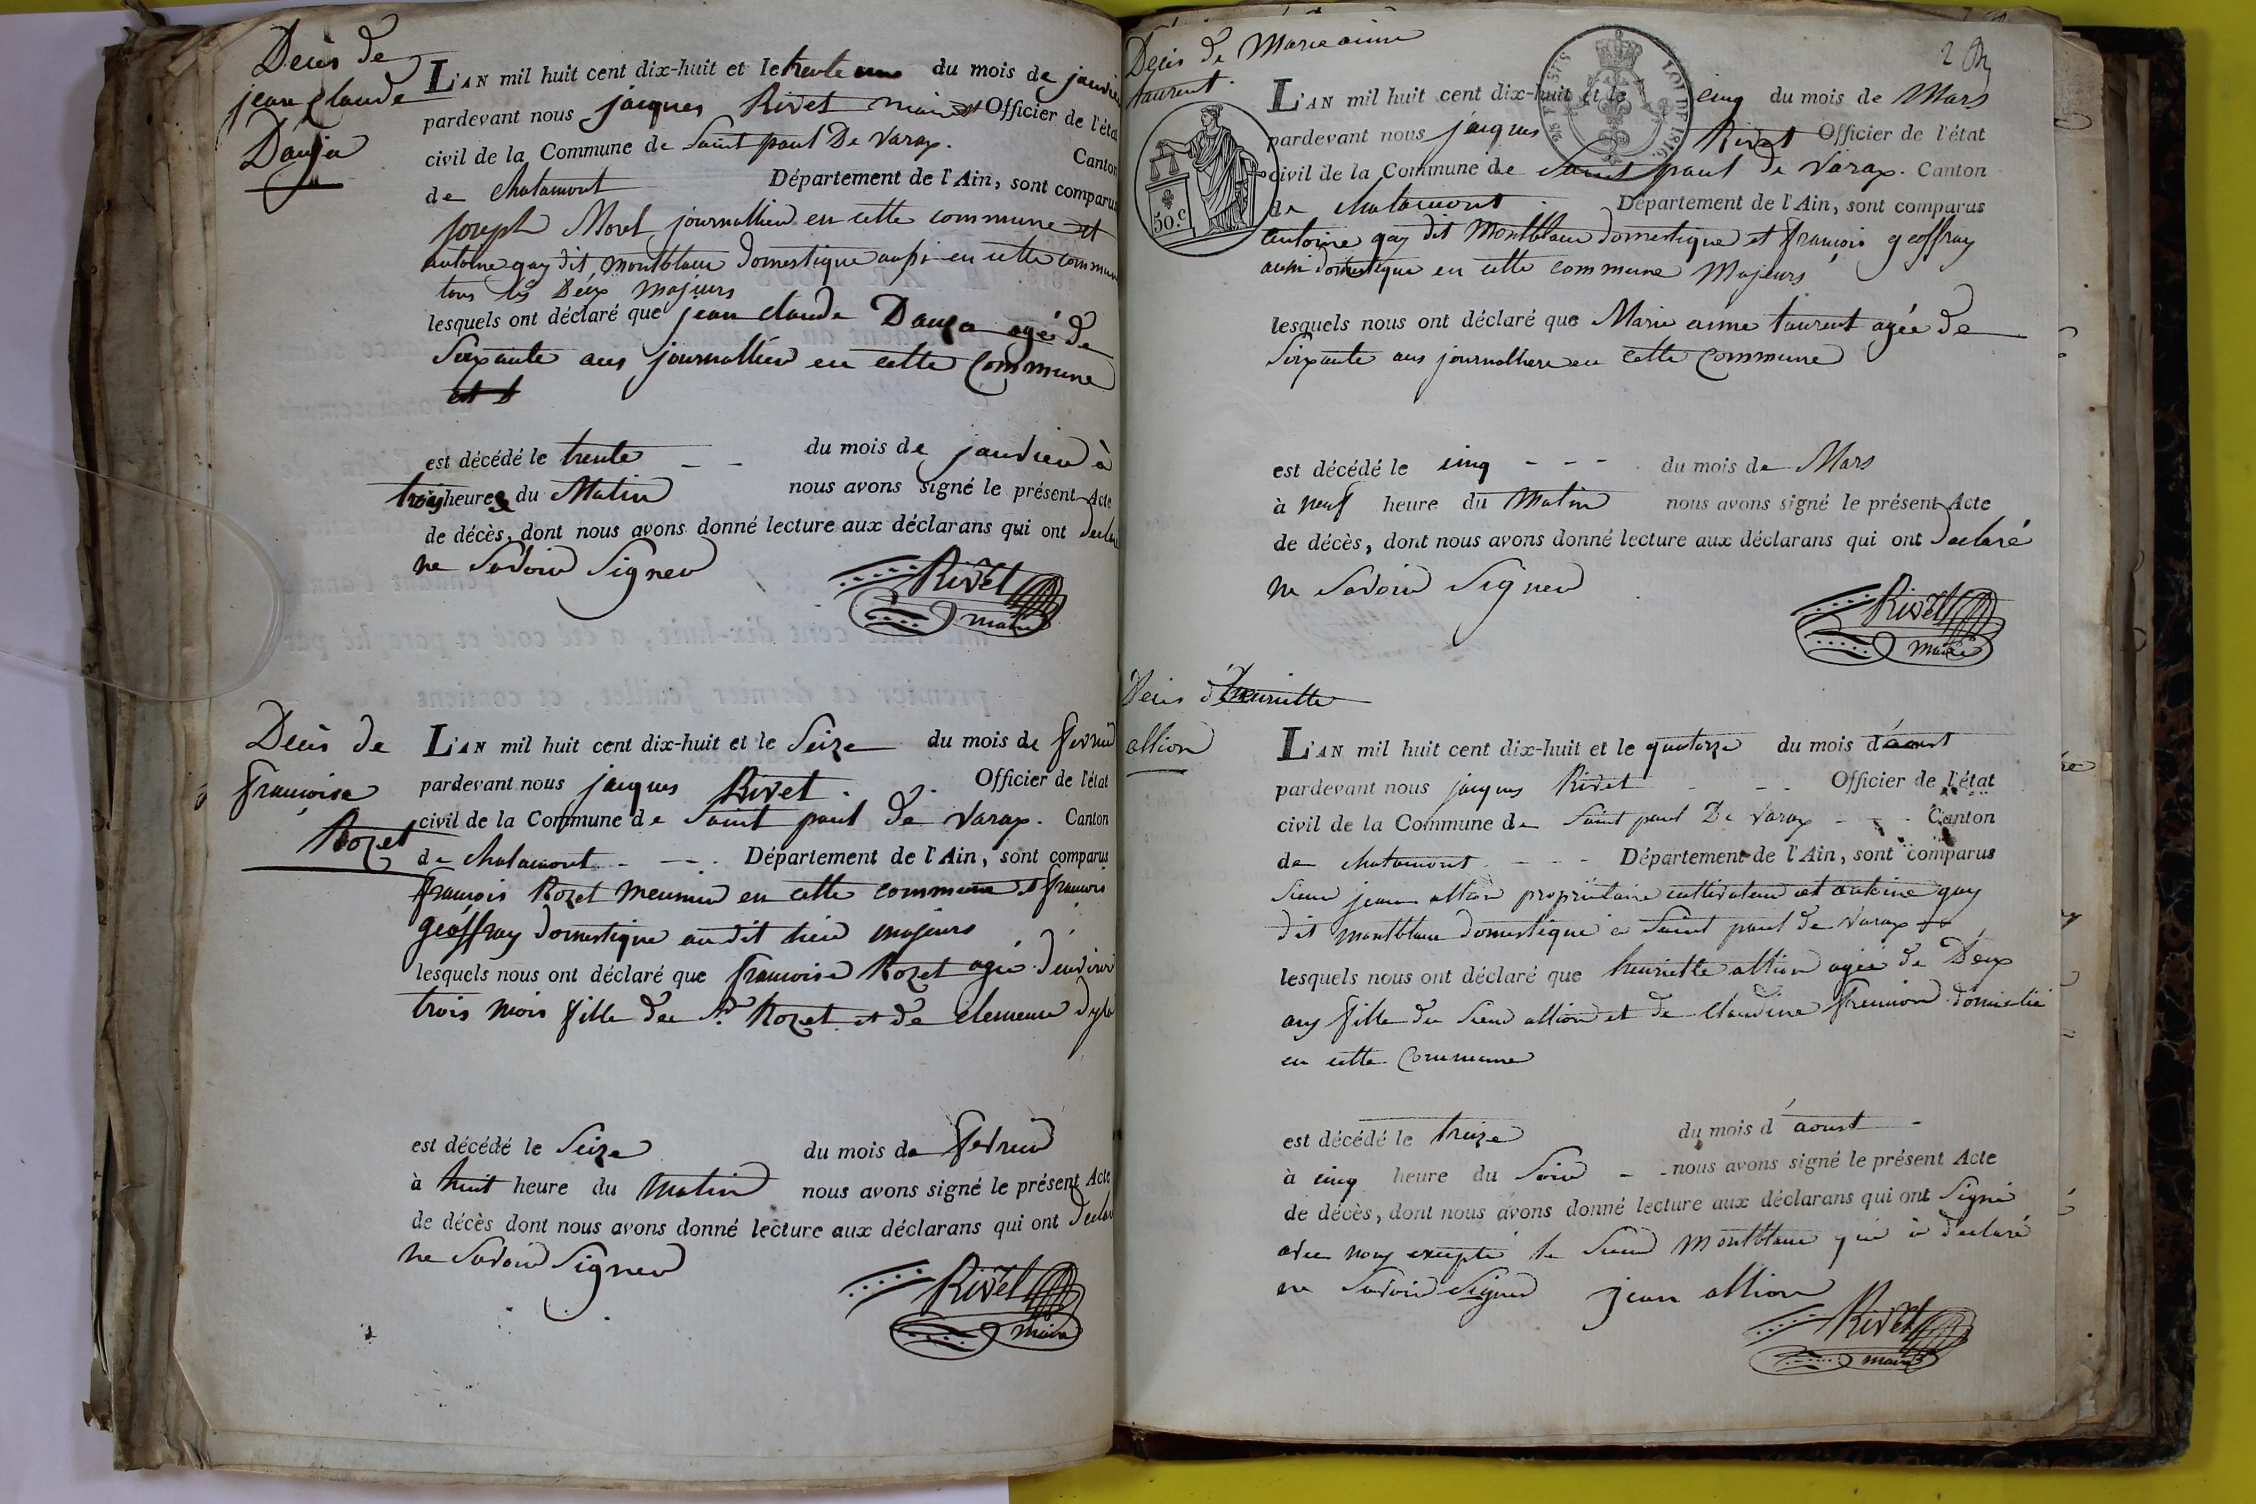 Décès de
jean claude
Dauja
L'AN mil huit cent dix-huit et le trente une du mois de janvier
pardevant nous jacques Rivet maire et Officier de l'état
civil de la Commune de Saint paul De Varax. Canton
de chalamont Département de l'Ain, sont comparus
joseph Morel journallier en cette commune et
antoine gay dit montblanc domestique aussi en cette commune
tous les Deux majeurs
lesquels ont déclaré que jean claude agé de
Soixante ans journallier en cette Commune
est décédé le trente du mois de janvier à
trois heures du Matin nous avons signé le présent Acte
de décès, dont nous avons donné lecture aux déclarans qui ont declaré
ne Savoir Signer
Rivet
maire
Décès de
françoise
Rozet
L'AN mil huit cent dix-huit et le Seize du mois de fevrier
pardevant nous jacques Rivet. Officier de l'état
civil de la Commune de Saint paul de Varax. Canton
de chalamont Département de l'Ain, sont comparus
françois Rozet meunier en cette commune et françois
geoffray domestique au dit lieu majeurs
lesquels nous ont déclaré que francoise Rozet agée d'environ
trois mois fille de Sr. Rozet et de clemence
est décédé le Seize du mois de fevrier
à huit heure du Matin nous avons signé le présent Acte
de décès dont nous avons donné lecture aux déclarans qui ont declaré
ne Savoir Signer
Rivet
maire
2
Décès de Marie aimé
taurent.
50.c
LOI DE 1816
L'AN mil huit cent dix-huit et le cinq du mois de Mars
pardevant nous jacques Rivet Officier de l'état
civil de la Commune de Saint paul de Varax. Canton
de chalamont Département de l'Ain, sont comparus
antoine gay dit Montblanc domestique et françois geoffray
aussi domestique en cette commune Majeurs
lesquels nous ont déclaré que Marie aimé taurent agée de
Soixante ans journalliere en cette Commune
est décédé le cinq - - - du mois de Mars
à neuf heure du Matin nous avons signé le présent Acte
de décès, dont nous avons donné lecture aux déclarans qui ont declaré
ne Savoir Signer
Rivet
maire
Décès d'henriette
allion
L'AN mil huit cent dix-huit et le quatorze du mois d'aoust
pardevant nous jacques Rivet Officier de l'état
civil de la Commune de Saint paul De Varax Canton
de chalamont Département de l'Ain, sont comparus
Sieur jean allion propriétaire cultivateur et antoine gay
dit montblanc domestique a Saint paul de Varax
lesquels nous ont déclaré que henriette allion agée de Deux
ans fille du Sieur allion et de Claudine domicilié
en cette Commune
est décédé le treize du mois d'aoust -
à cinq heure du Soir - nous avons signé le présent Acte
de décès, dont nous avons donné lecture aux déclarans qui ont Signé
avec nous excepté le Sieur Montblanc qui a declaré
ne Savoir Signer jean allion
Rivet
maire